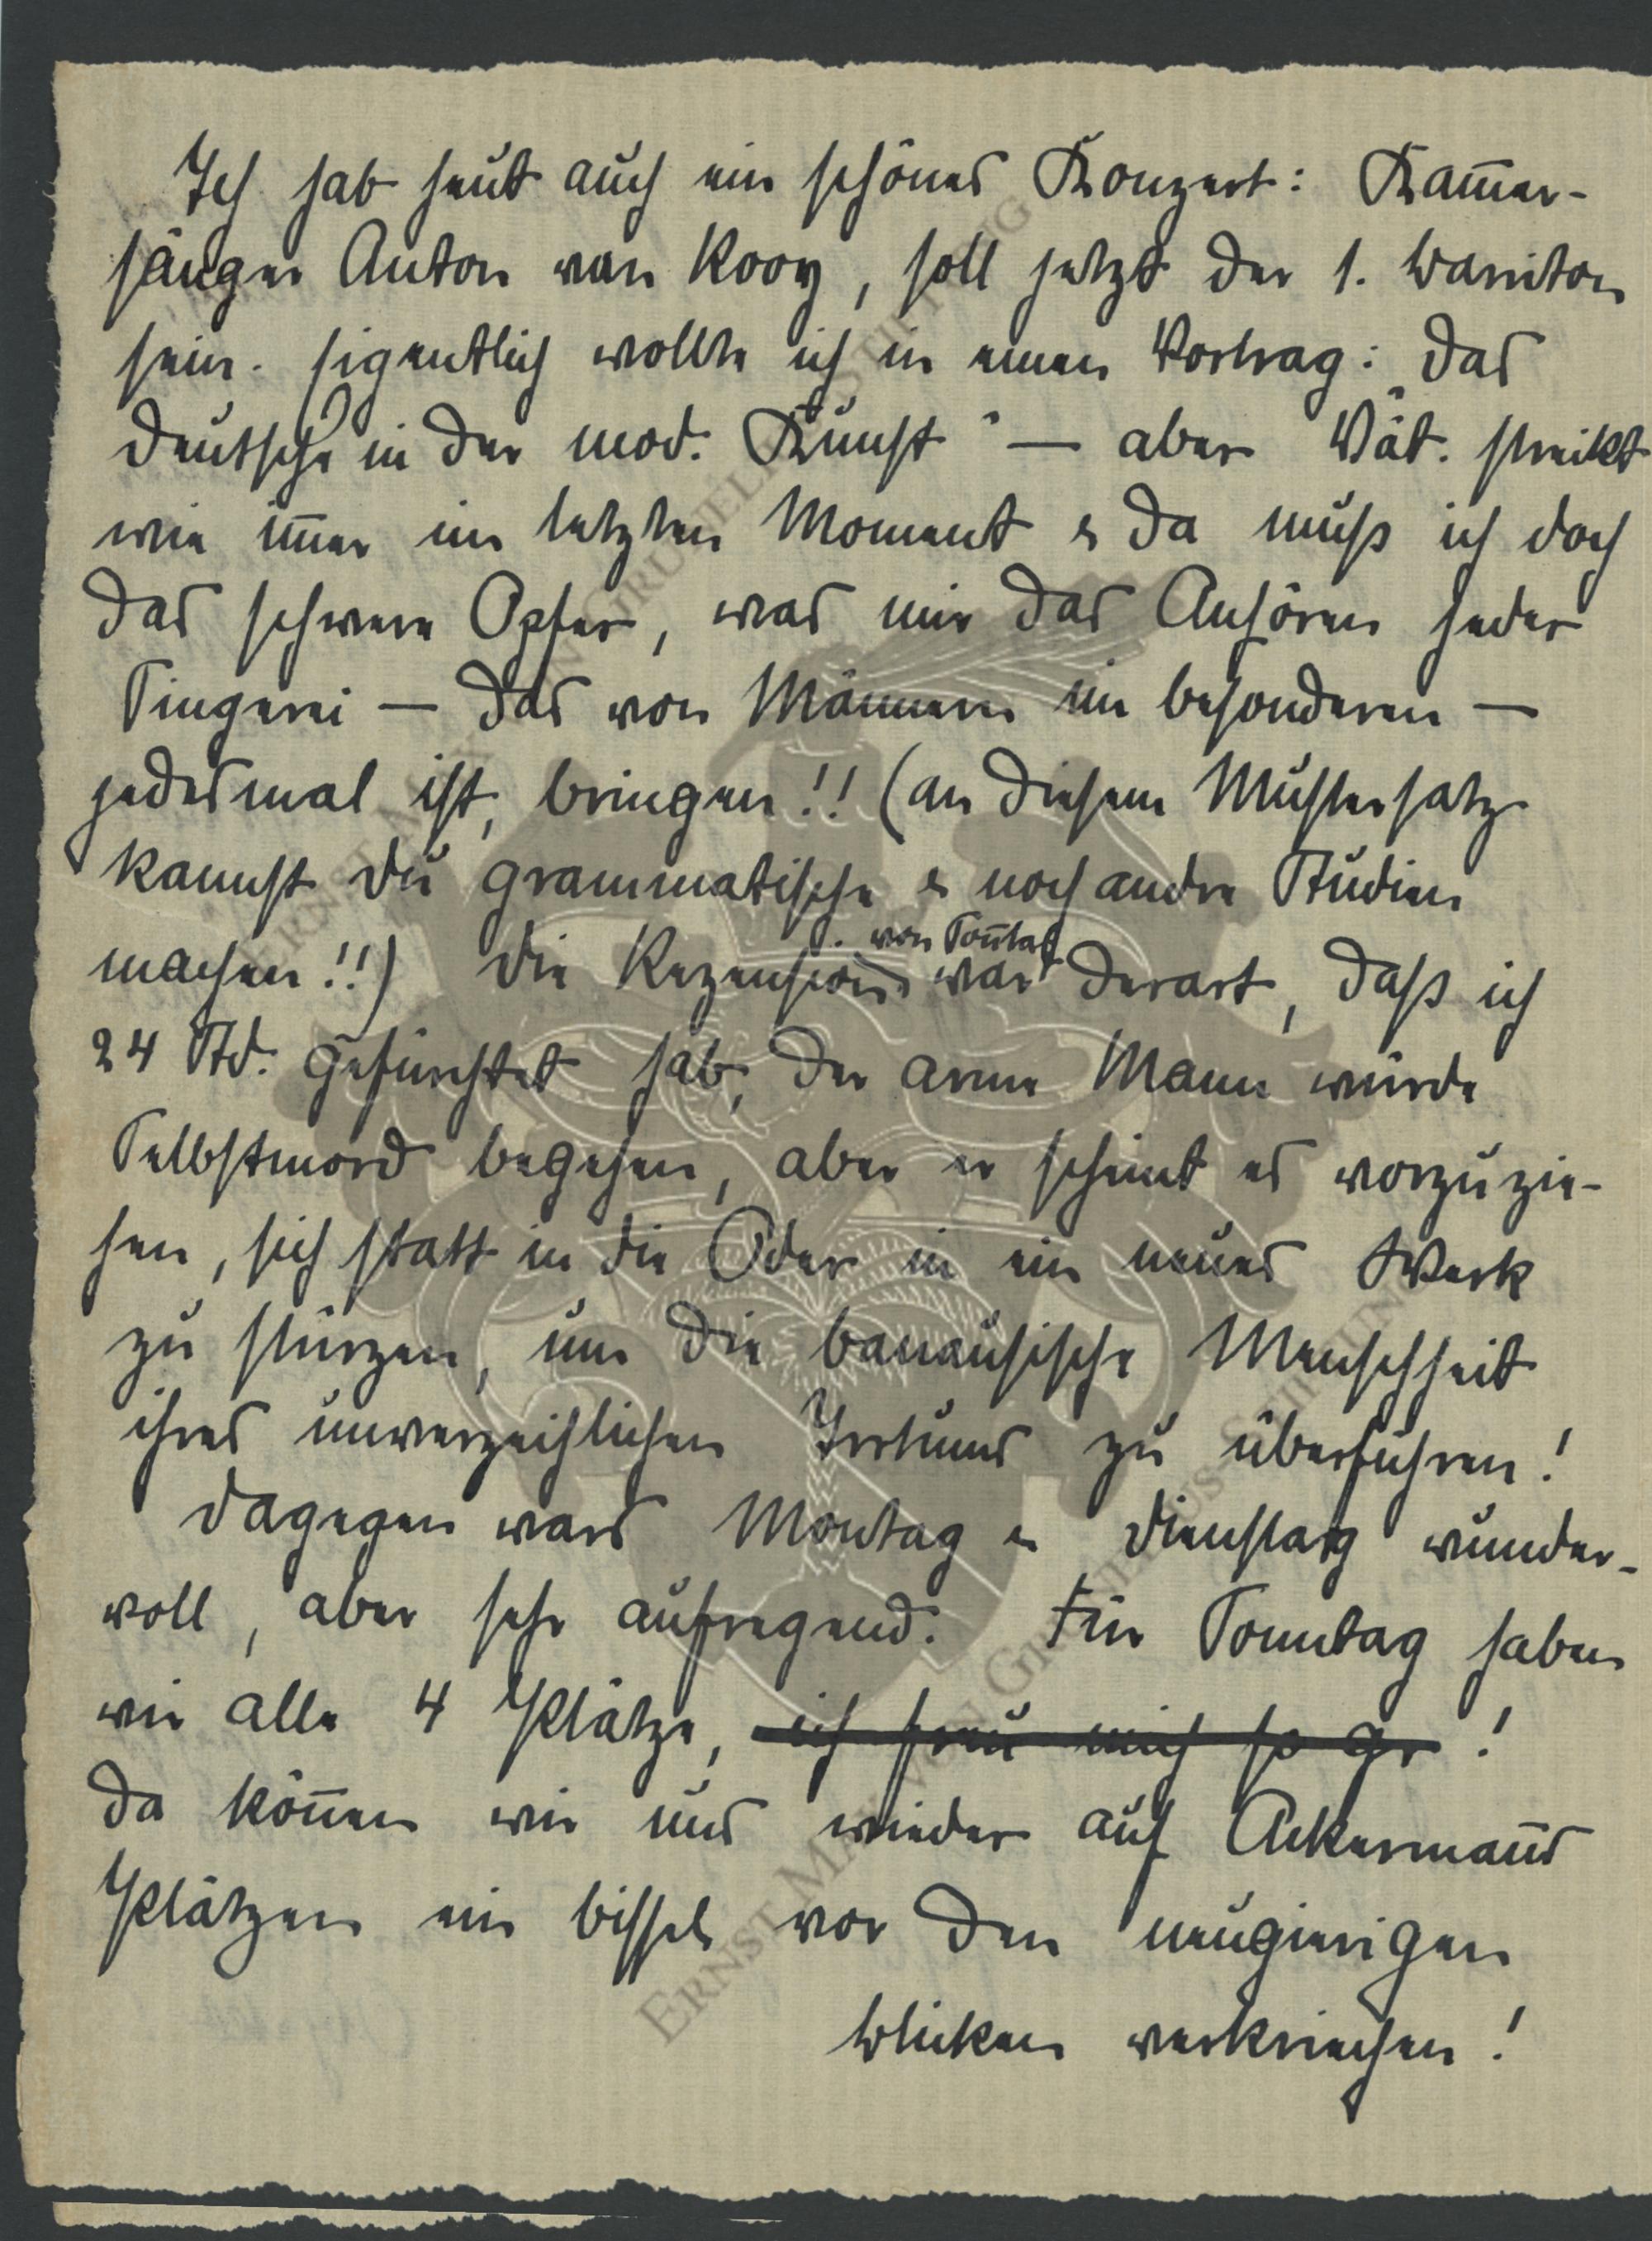 Ich hab heut auch ein schönes Konzert: Kam̅er-
sänger Anton van Rooy, soll jetzt der 1. Bariton
sein. Eigentlich wollte ich in einen Vortrag: „Das
Deutsche in der mod. Kunst" — aber Vät. streikt
wie im̅er im letzten Moment & da muß ich doch
das schwere Opfer, was mir das Anhören jeder
Singerei — das von Männern im besonderen —
jedesmal ist, bringen!! (an diesem Mustersatz
kannst Du grammatische & noch andre Studien
machen!!) Die Rezension von Son̅tag war derart, daß ich
24 Std. gefürchtet hab, der arme Mann würde
Selbstmord begehen, aber er scheint es vorzuzie-
hen, sich statt in die Oder in ein neues Werk
zu stürzen, um die banausische Menschheit
ihres unverzeihlichen Irrtums zu überführen!
Dagegen wars Montag & Dienstag wunder-
voll, aber sehr aufregend. Für Sonntag haben
wir alle 4 Plätze, ich freu mich so gr !
da kön̅en wir uns wieder auf Ackerman̅s
Plätzen ein bissel vor den neugierigen
Blicken verkriechen!
ERNST MAX VON GRUNELIUS-STIFTUNG
ERNST MAX VON GRUNELIUS-STIFTUNG